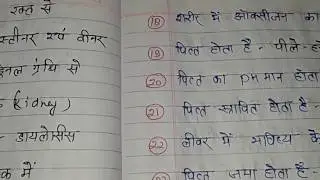 रक्त से
स्टीनर एवं वीनर
ग्रंथि से
Kidney)
- डायलोसीस
में
(18) शरीर में ऑक्सीजन का
(19) पित्त होता है - पीले-
(20) पित्त का PH मान होता
(21) पित्त स्त्रावित होता है -
(22) लीवर में भविष्य के
पित्त जमा होता है -